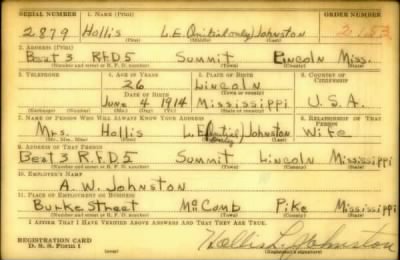 SERIAL NUMBER 1. NAME (Print) ORDER NUMBER
2879 Hollis L.E.(initial only) Johnston 2153
2. ADDRESS (Print)
Beat 3 R.F.D 5 Summit Lincoln Miss.
(Number and street or R. F. D. number) (Town) (County) (State)
3. TELEPHONE 4. AGE IN YEARS 5. PLACE OF BIRTH 6. COUNTRY OF CITIZENSHIP
26 Lincoln
DATE OF BIRTH (Town or county)
June 4 1914 Mississippi U.S.A.
(Exchange) (Number) (Mo.) (Day) (Yr.) (State or country)
7. NAME OF PERSON WHO WILL ALWAYS KNOW YOUR ADDRESS 8. RELATIONSHIP OF THAT PERSON
Mrs. Hollis L.E.(initial only) Johnston Wife
(Mr., Mrs., Miss) (First) (Middle) (Last)
9. ADDRESS OF THAT PERSON
Beat 3 R.F.D 5 Summit Lincoln Mississippi
(Number and street or R. F. D. number) (Town) (County) (State)
10. EMPLOYER'S NAME
A. W. Johnston
11. PLACE OF EMPLOYMENT OR BUSINESS
Burke Street McComb Pike Mississippi
(Number and street or R. F. D. number) (Town) (County) (State)
I AFFIRM THAT I HAVE VERIFIED ABOVE ANSWERS AND THAT THEY ARE TRUE.
REGISTRATION CARD
D. S. S. Form 1
Hollis L. Johnston
(Registrant's signature)